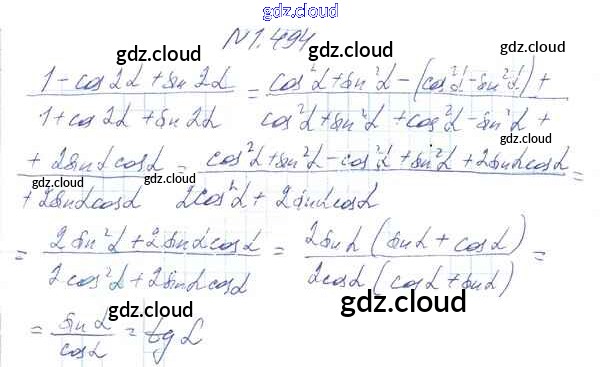 gdz.cloud
N 1.494
gdz.cloud gdz.cloud
(1 - cos 2α + sin 2α)/(1 + cos 2α + sin 2α) = (cos²α + sin²α - (cos²α - sin²α) +)/(cos²α + sin²α + cos²α - sin²α +
gdz.cloud gdz.cloud
+ 2sinα cosα)/(+ 2sinα cosα) = (cos²α + sin²α - cos²α + sin²α + 2sinα cosα)/(2cos²α + 2sinα cosα) =
gdz.cloud gdz.cloud gdz.cloud
= (2sin²α + 2sinα cosα)/(2cos²α + 2sinα cosα) = (2sinα (sinα + cosα))/(2cosα (cosα + sinα)) =
gdz.cloud gdz.cloud
= sinα/cosα = tgα